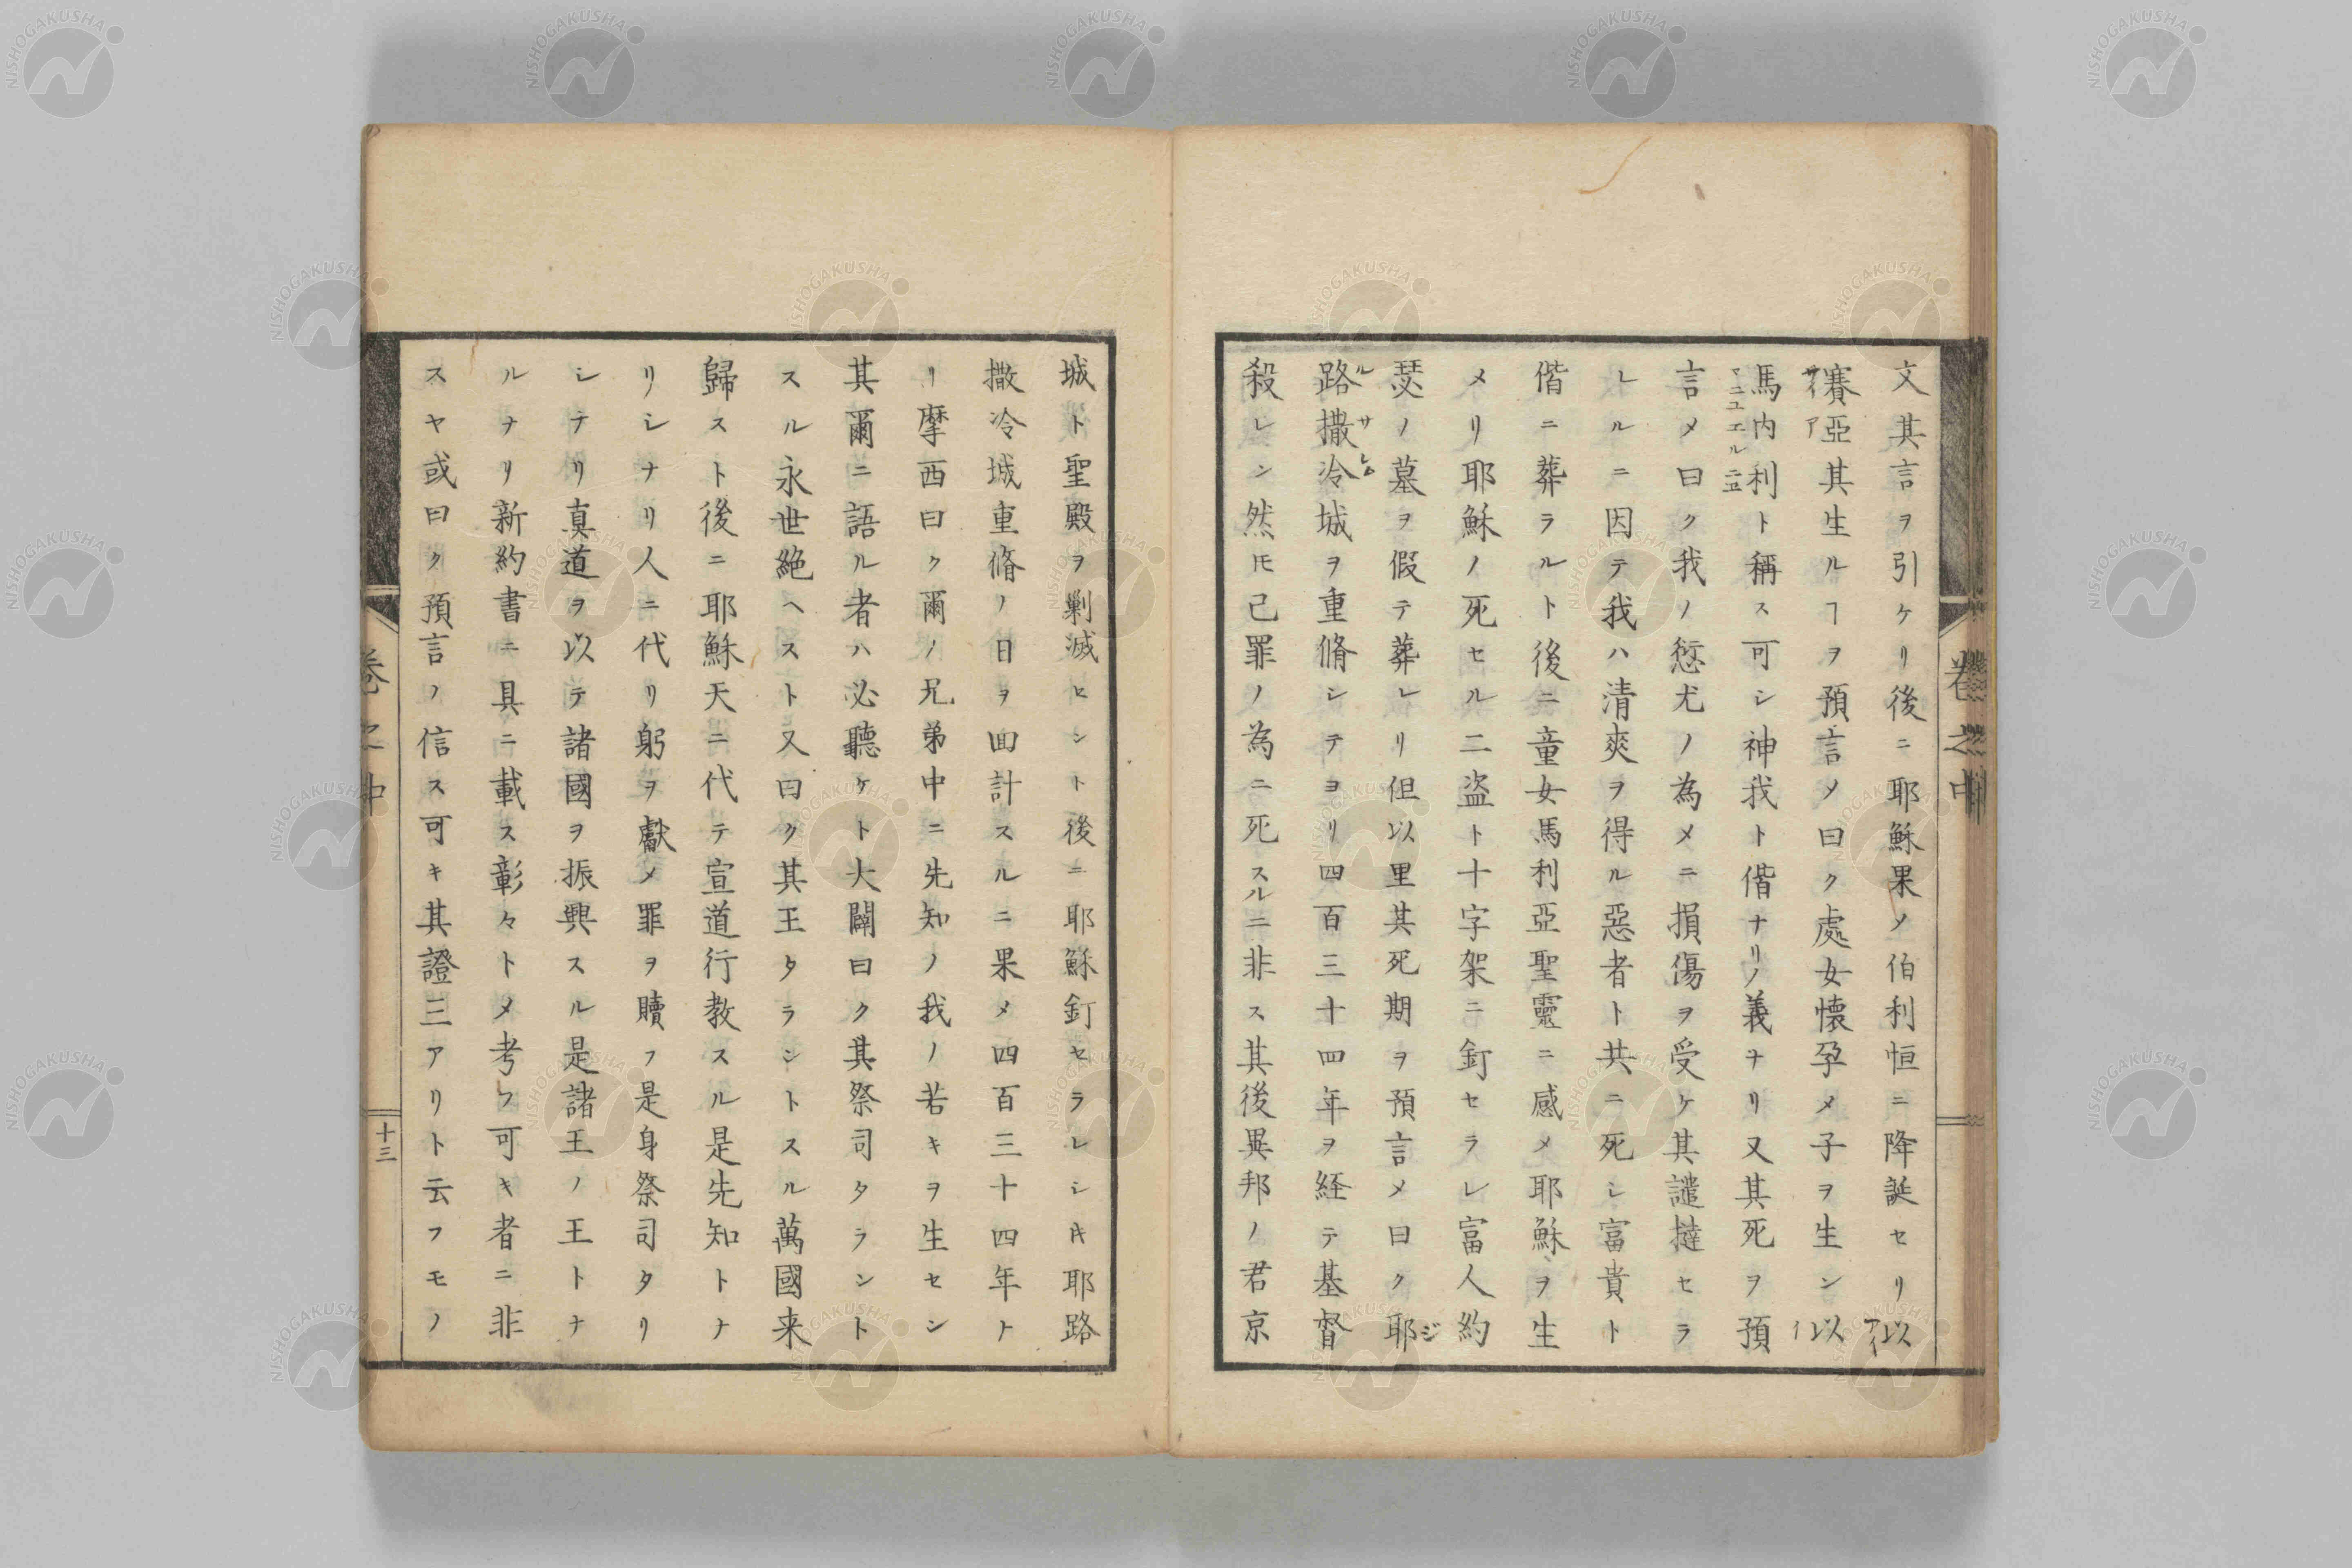 文其言ヲ引ケリ後ニ耶穌果メ伯利恒ニ降誕セリ以
賽亞其生ルヿヲ預言メ曰ク處女懐孕メ子ヲ生ン以
馬内利ト稱ス可シ神我ト偕ナリノ義ナリ又其死ヲ預
言メ曰ク我ノ愆尤ノ為メニ損傷ヲ受ケ其譴撻セラ
レルニ因テ我ハ清爽ヲ得ル惡者ト共ニ死シ富貴ト
偕ニ葬ラルト後ニ童女馬利亞聖靈ニ感メ耶穌ヲ生
メリ耶穌ノ死セル二盗ト十字架ニ釘セラレ富人約
瑟ノ墓ヲ假テ葬レリ但以里其死期ヲ預言メ曰ク耶
路撒冷城ヲ重脩シテヨリ四百三十四年ヲ経テ基督
殺レン然𪜈己罪ノ為ニ死スルニ非ス其後異邦ノ君京
卷之中
城ト聖殿ヲ剿滅セント後ニ耶穌釘セラレシキ耶路
撒冷城重脩ノ日ヲ囬計スルニ果メ四百三十四年ト
リ摩西曰ク爾ノ兄弟中ニ先知ノ我ノ若キヲ生セン
其爾ニ語ル者ハ必聽ケト大闢曰ク其祭司タラント
スル永世絶ヘスト又曰ク其王タラントスル萬國来
歸スト後ニ耶穌天ニ代テ宣道行教スル是先知トナ
リシナリ人ニ代リ躬ヲ獻メ罪ヲ贖フ是身祭司タリ
シナリ真道ヲ以テ諸國ヲ振興スル是諸王ノ王トナ
ルナリ新約書ニ具ニ載ス彰々トメ考フ可キ者ニ非
スヤ或曰ク預言ノ信ス可キ其證三アリト云フモノ
卷之中
十三
NISHOGAKUSHA